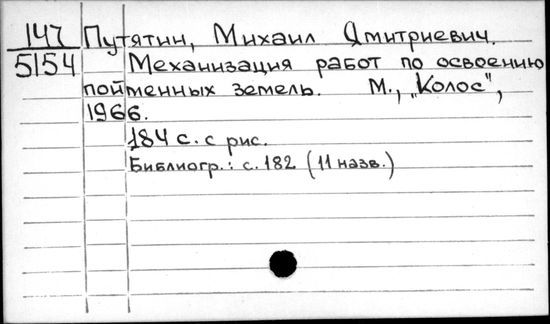 147 Путятин, Михаил Дмитриевич.
5154 Механизация работ по освоению
пойменных земель. М., "Колос",
1966.
184 с. с рис.
Библиогр.: с. 182 (11 назв.)